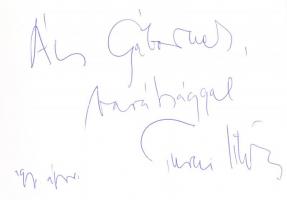 Ács Gábornak,
barátsággal
'97 ápr.